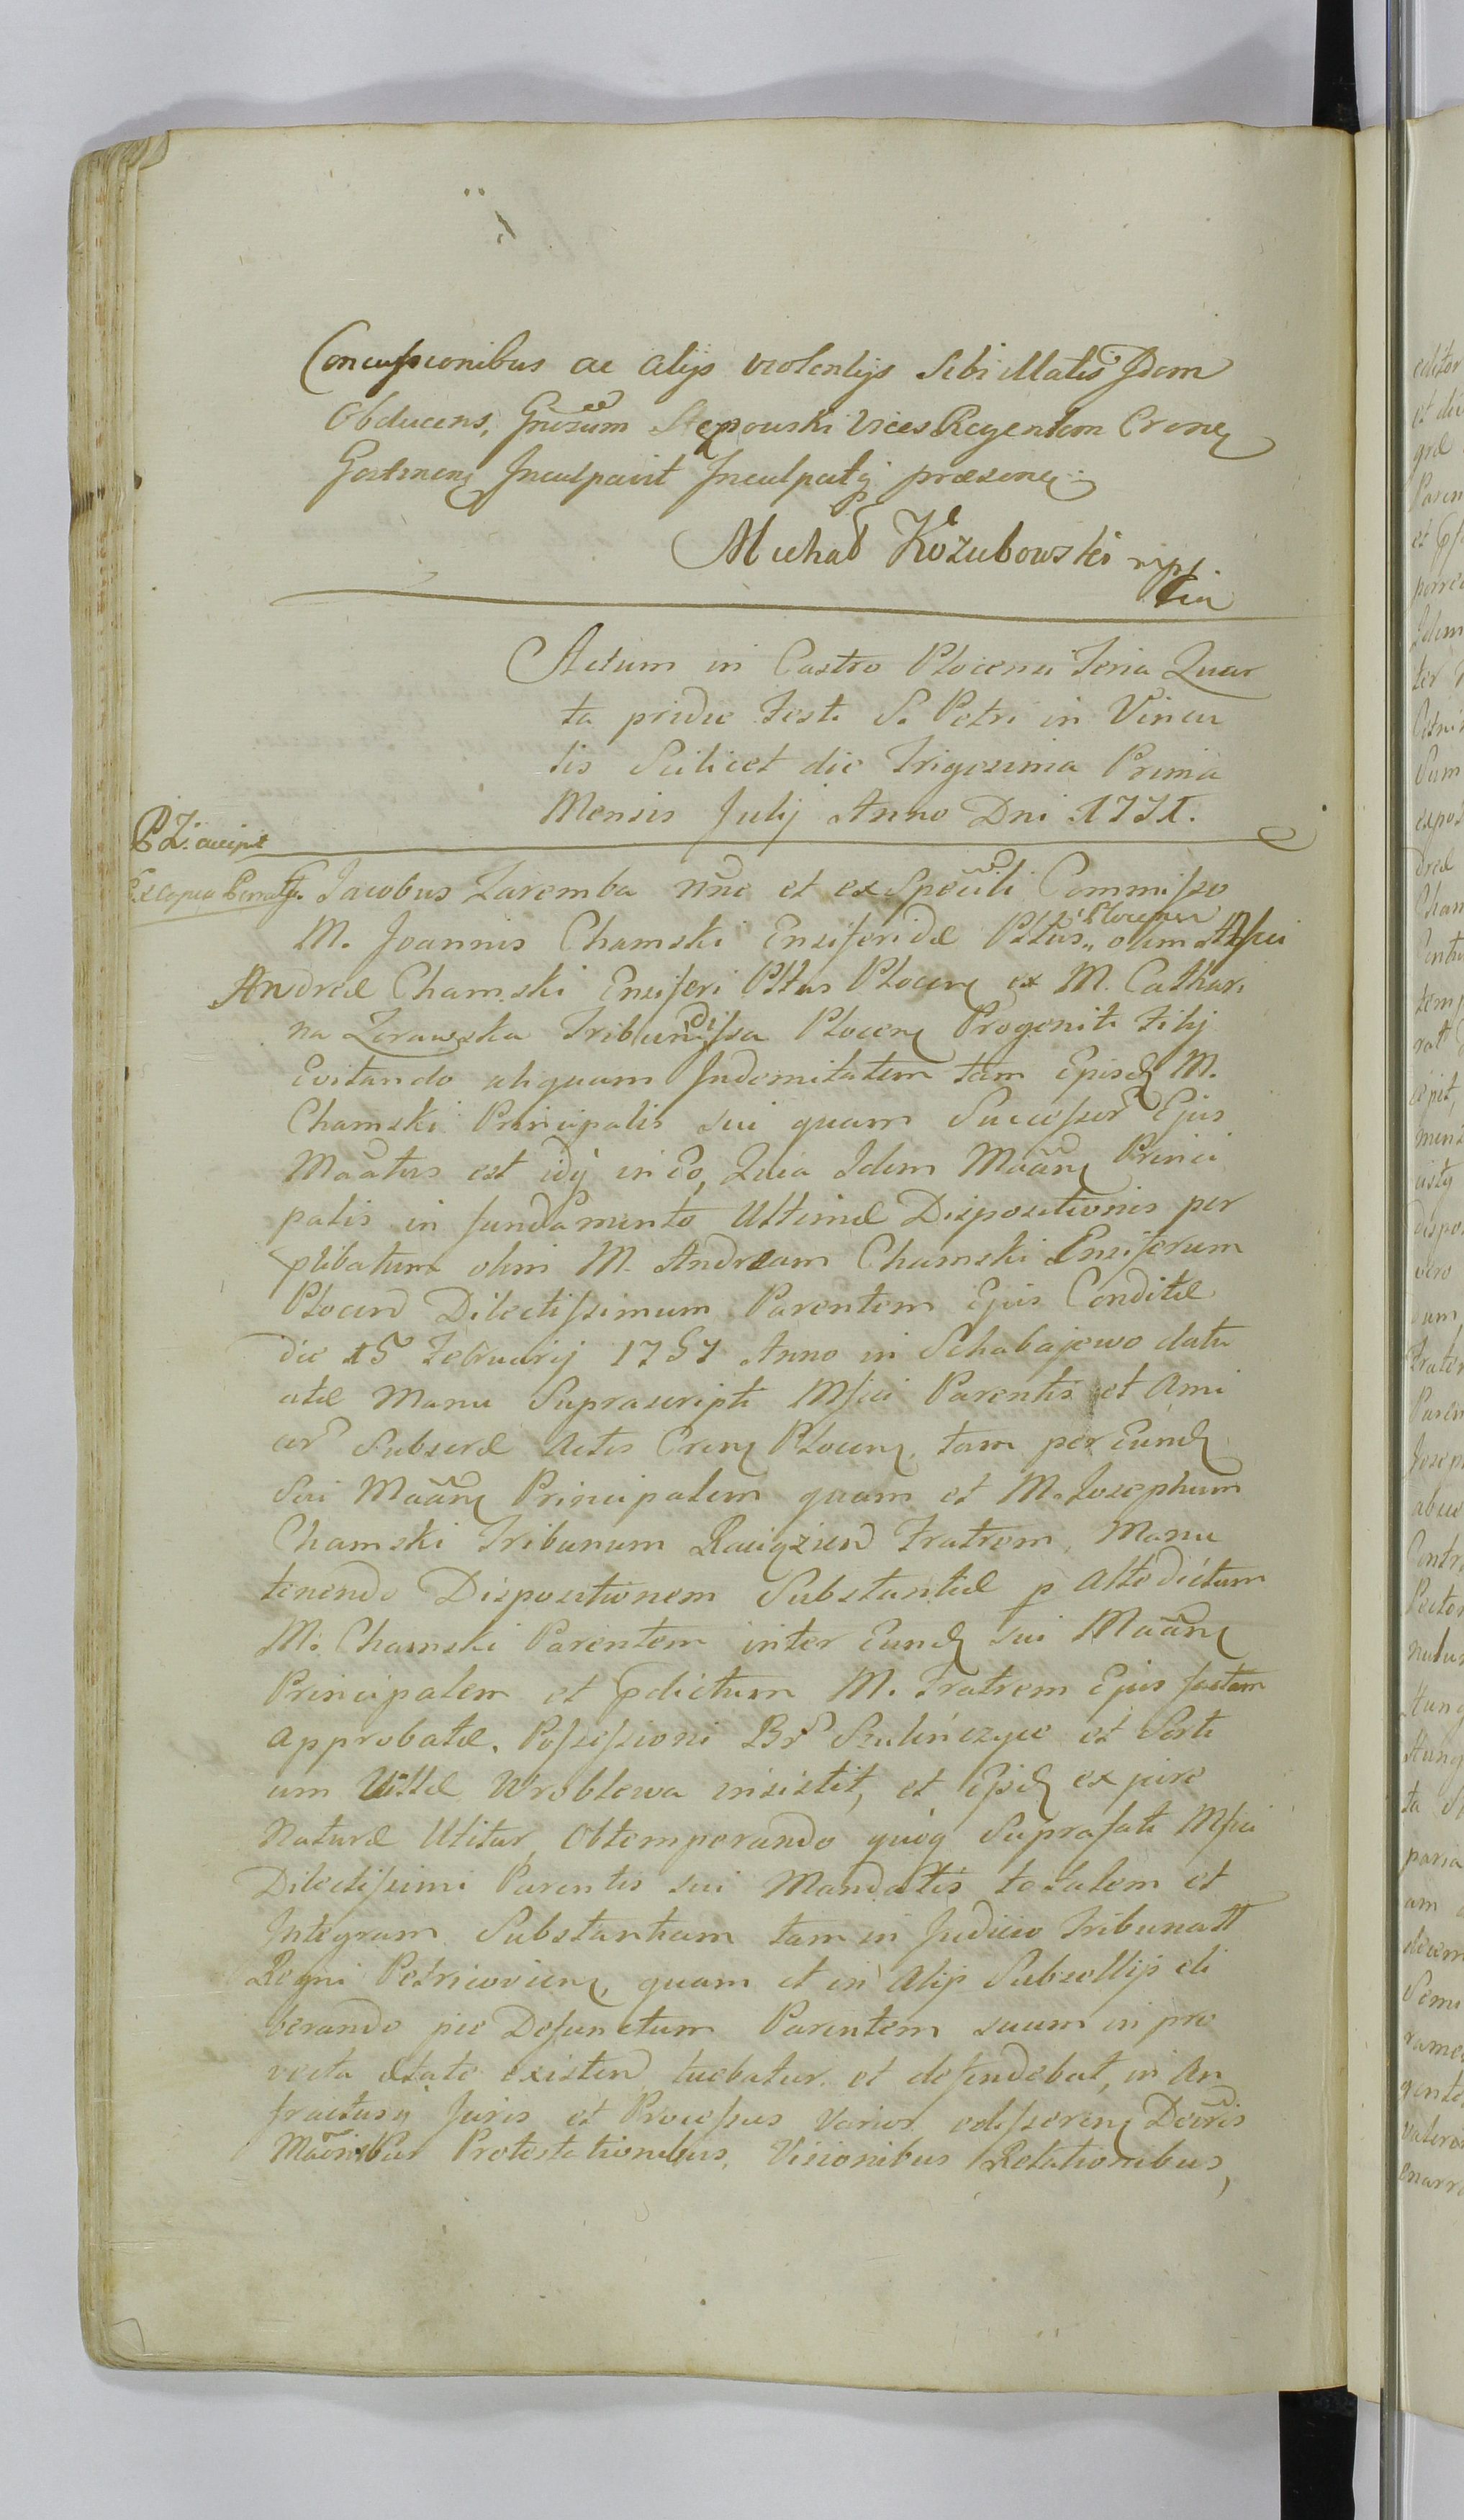 Concussionibus ac alijs violentijs sibi illatis Idem
Obducens, Gnosum Stępowski Vices Regentem Crens
Gostinens Inculpavit Inculpatq praesens
Michał Kozubowski mpp
Actum in Castro Plocensi Feria Quar
ta pridie Festi S. Petri in Vincu
lis Scilicet die Trigesima Prima
Mensis Julij Anno Dni 1771.
P Z. accipit
Ex copia
Jacobus Zaremba nne et ex Speciali Commisso
M. Joannis Chamski Ensiferidæ Pltus Plocensis olim Mfci
Andreæ Chamski Ensiferi Pltus Plocens ex M. Cathari
na Zorawska Tribunidissa Plocens Progeniti Filij
Evitando aliquam Indemnitatem tam Ejusd M.
Chamski Principalis sui quam Successor Ejus
est idq in Eo, Quia Idem Princi
palis in fundamento Ultimæ Dispositionis per
plibatum olim M. Andream Chamski Ensiferum
Plocen Dilectissimum Parentem Ejus Conditæ
die 15 Februarij 1757 Anno in Schabajewo datu
atæ Manu Suprascripti Mfici Parentis et Ami
cor Subscræ Actis Crens Plocens tam per Eund
Sui Principalem quam et M. Josephum
Chamski Tribunum Raciązien Fratrem, Manu
tenendo Dispositionem Substantiæ p Altedictum
M. Chamski Parentem inter Eund sui
Principalem et pdictum M. Fratrem Ejus factam
approbatæ. Possessioni Br Szulińczyce et Sorti
um Villæ Wroblewa insistit, et Ejsd ex jure
Naturæ Utitur, Obtemperando quoq Suprafati Mfici
Dilectissimi Parentis sui Mandatis totalem et
Integram Substantiam tam in Judicio Tribunatt
Regni Petricoviens, quam et in alijs Subsellijs eli
berando pie Defunctum Parentem suum in pro
vecta ætate existen tuebatur et defendebat, in An
fractusq Juris et Processus varior edisseren
Protestationibus, Visionibus Relationibus,